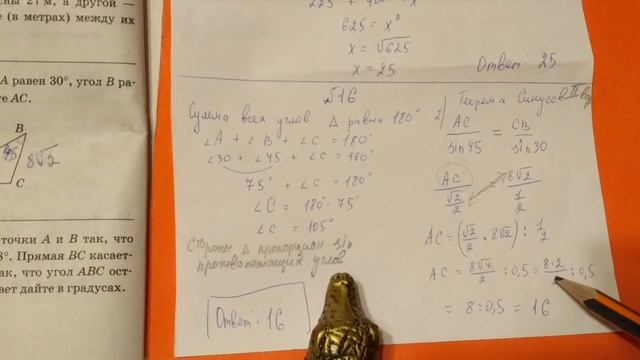 ны 27 м, а другой —
е (в метрах) между их
A равен 30°, угол B ра-
те AC.
B
45
8√2
C
точки A и B так, что
8°. Прямая BC касает-
ак, что угол ABC ост-
вет дайте в градусах.
625 = x²
x = √625
x = 25
Ответ: 25
№16
Сумма всех углов Δ равна 180°
∠A + ∠B + ∠C = 180°
∠30 + ∠45 + ∠C = 180°
75° + ∠C = 180°
∠C = 180° - 75°
∠C = 105°
Стороны Δ пропорцион sin
противолежащих углов
Ответ: 16
2) Теорема Синусов II
AC/sin45 = CB/sin30
AC/(√2/2) = 8√2/(1/2)
AC = (√2/2 · 8√2) : 1/2
AC = 8√4/2 : 0,5 = 8·2/2 : 0,5
= 8 : 0,5 = 16